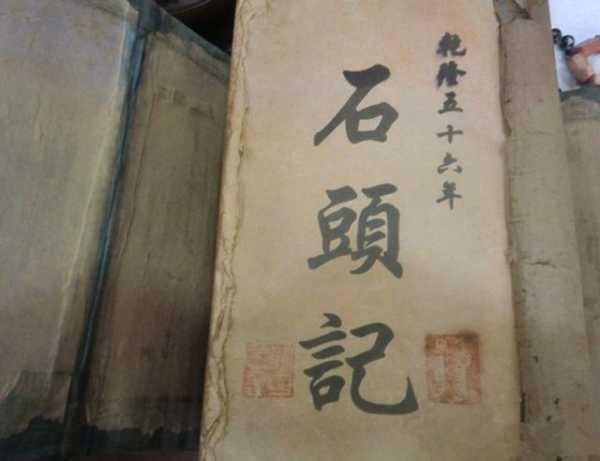 乾隆五十六年
石頭記